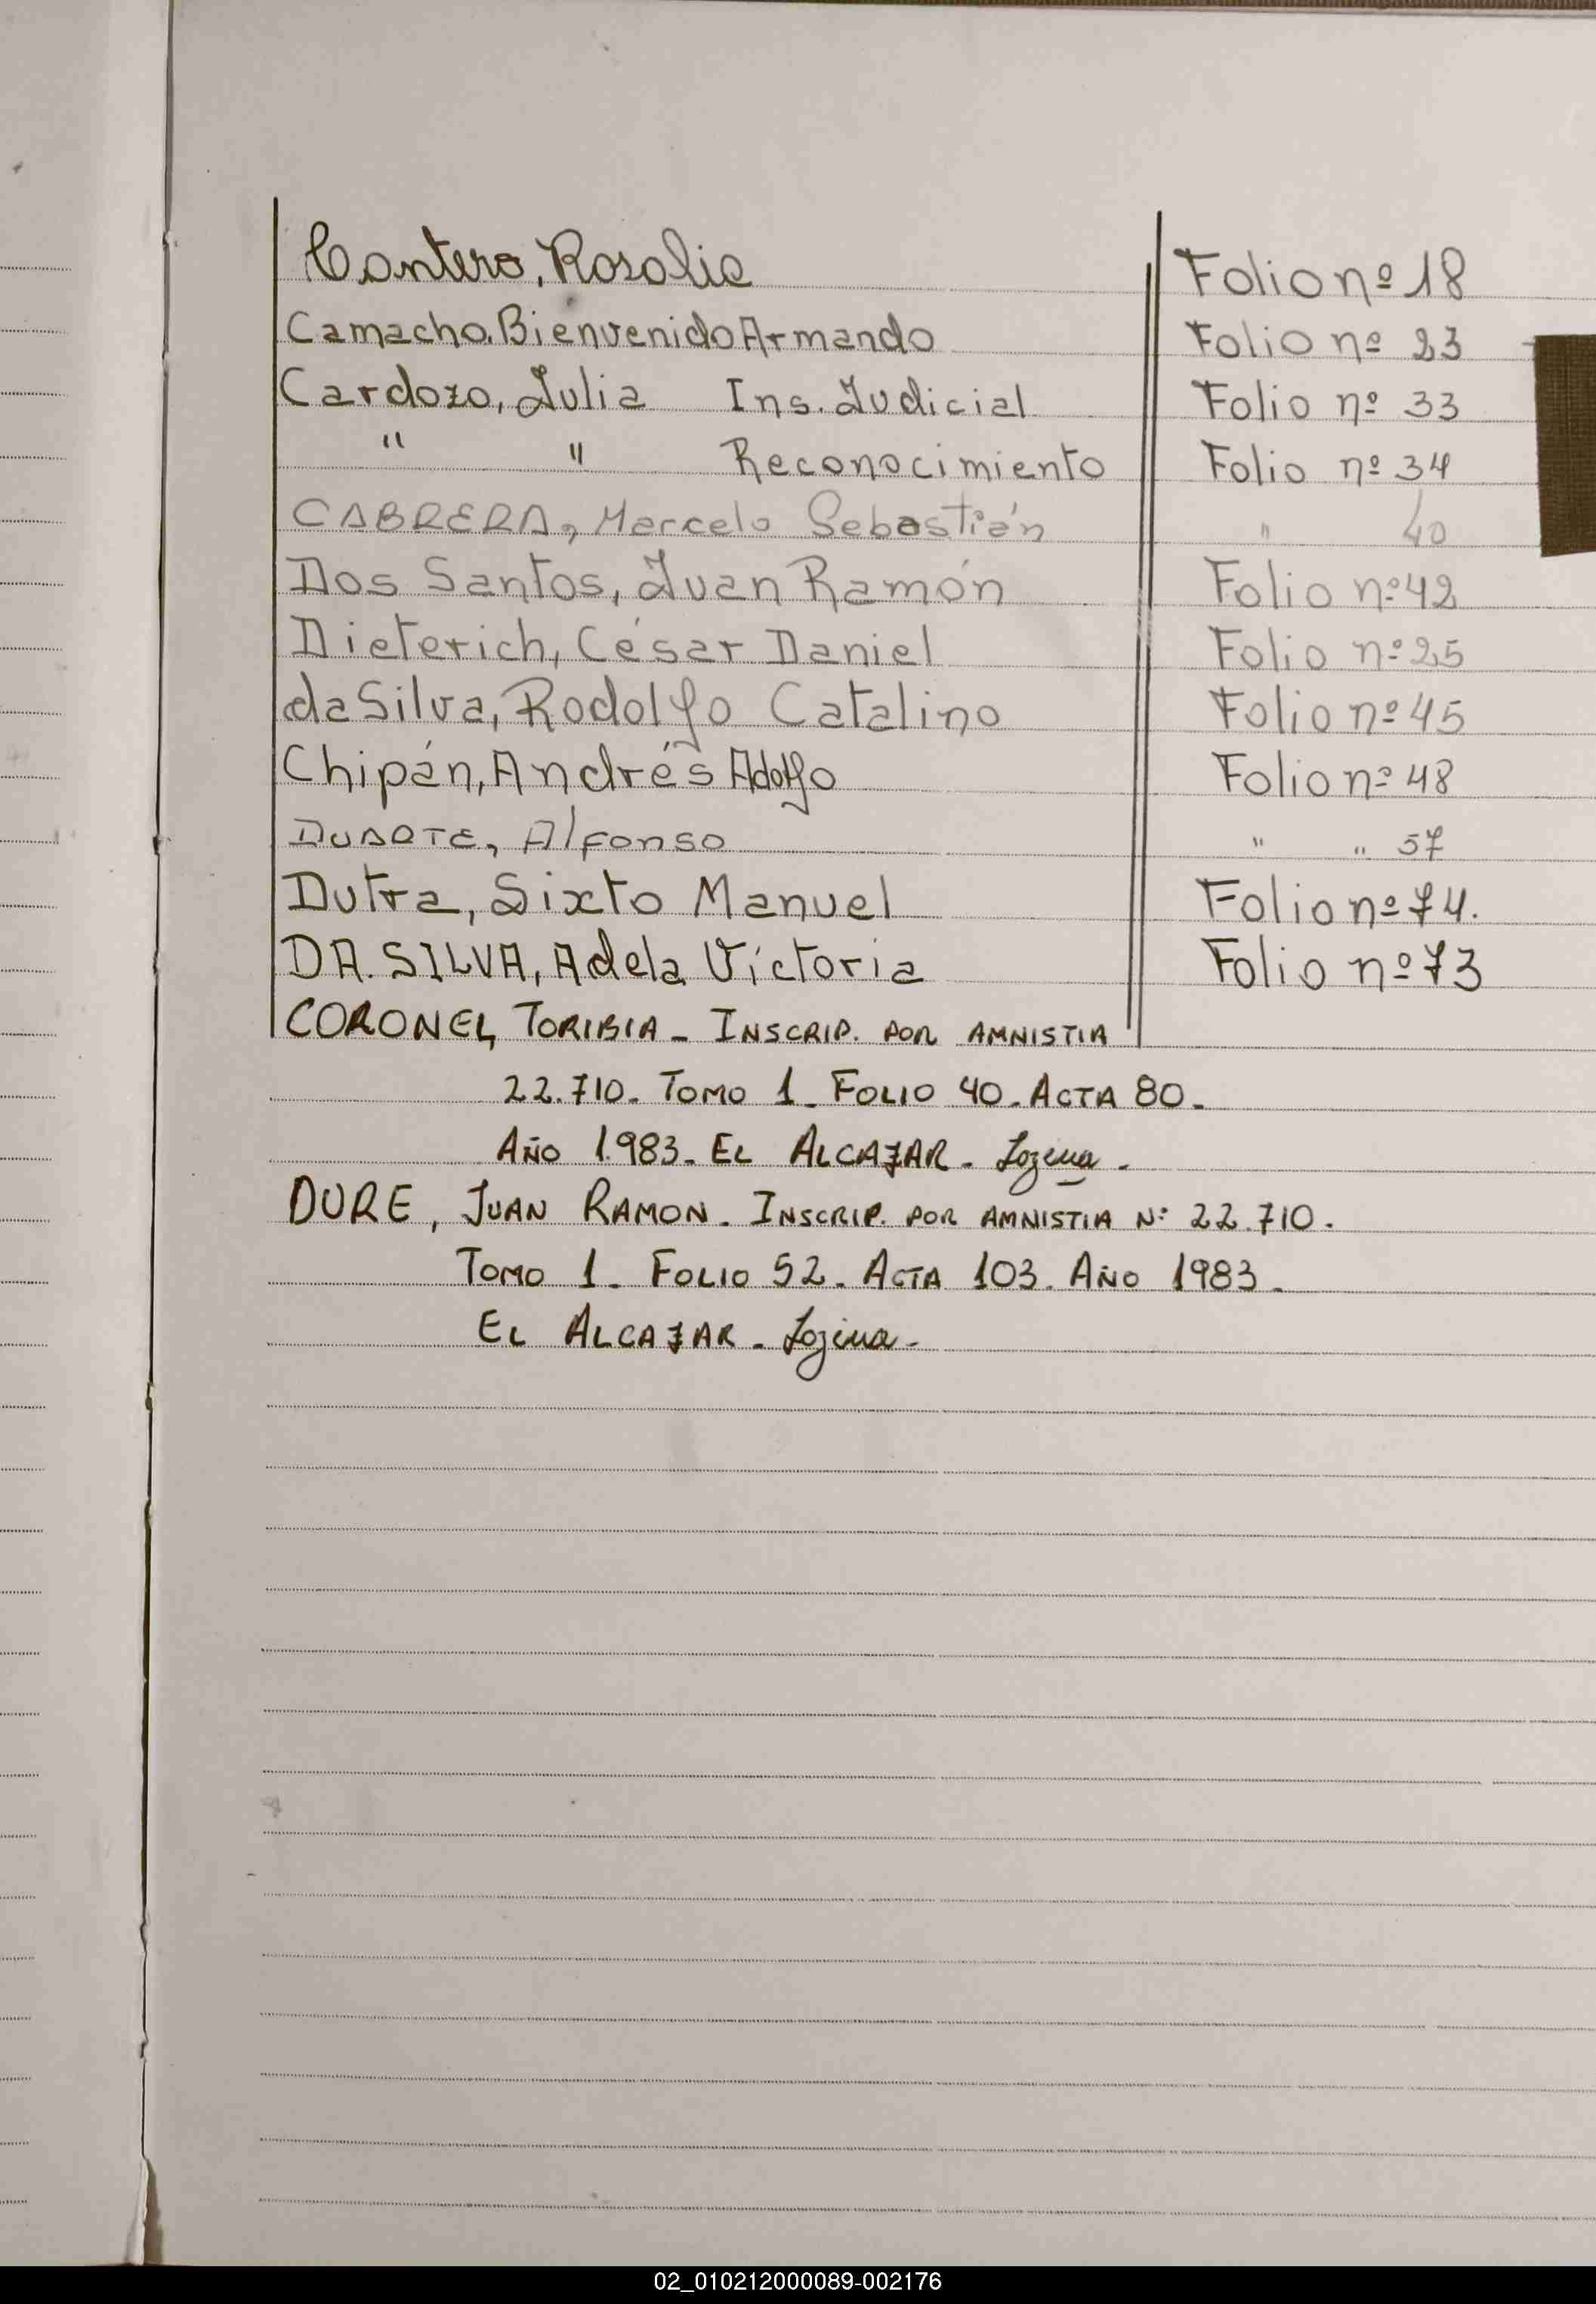 Cantero, Rosalia Folio nº 18
Camacho, Bienvenido Armando Folio nº 23
Cardozo, Julia Ins. Judicial Folio nº 33
" " Reconocimiento Folio nº 34
CABRERA, Marcelo Sebastián " 40
Dos Santos, Juan Ramón Folio nº 42
Dieterich, César Daniel Folio nº 25
da Silva, Rodolfo Catalino Folio nº 45
Chipán, Andrés Adolfo Folio nº 48
DUARTE, Alfonso " " 57
Dutra, Sixto Manuel Folio nº 74.
DA. SILVA, Adela Victoria Folio nº 73
CORONEL, TORIBIA - INSCRIP. POR AMNISTIA
22.710. TOMO 1 - FOLIO 40 - ACTA 80 -
AÑO 1.983 - EL ALCAZAR -
DURE, JUAN RAMON - INSCRIP. POR AMNISTIA Nº 22.710.
TOMO 1 - FOLIO 52 - ACTA 103. AÑO 1983 -
EL ALCAZAR -
02_010212000089-002176